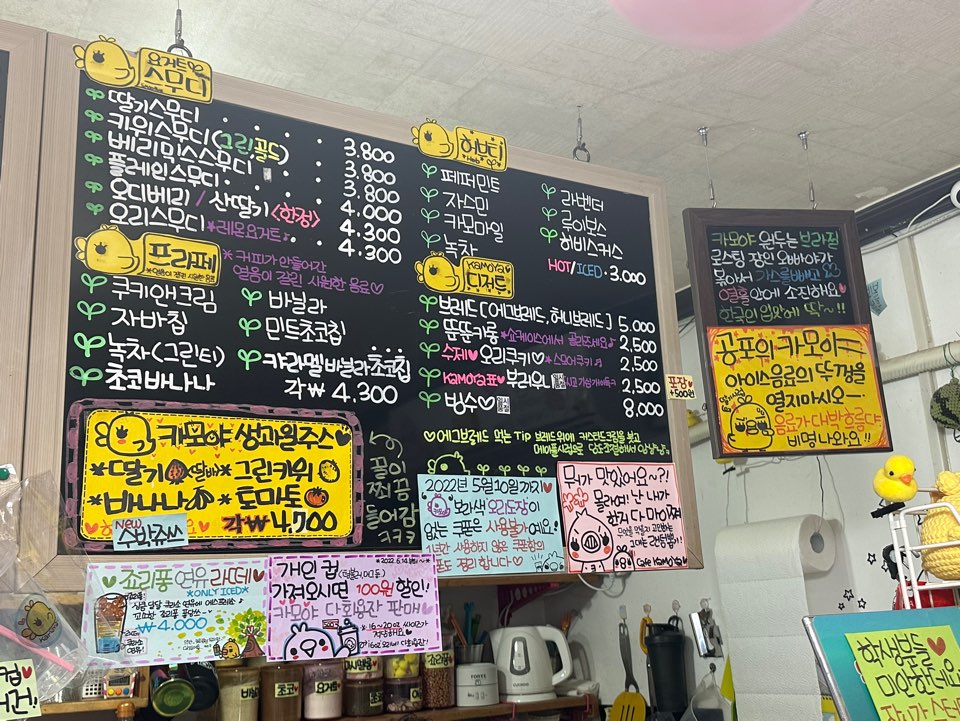 요거트
스무디
딸기스무디 3.800
키위스무디(그린골드) 3.800
베리믹스스무디 3.800
플레인스무디 4.000
오디베리 / 산딸기<한정> 4.300
오리스무디 *레몬요거트♪ 4.300
프라페
*커피가 안들어간
얼음이 갈린 시원한 음료♡
쿠키앤크림
자바칩
녹차(그린티)
초코바나나
바닐라
민트초코칩
카라멜바닐라초코칩
각₩ 4.300
카모야 생과일주스
*딸기 *그린키위
*바나나 *토마토
각₩ 4.700
NEW
수박쥬스
꿀이
쬐끔
들어감
ㅋㅋㅋ
허브티
페퍼민트
자스민
카모마일
녹차
라벤더
루이보스
히비스커스
HOT/ICED 3.000
KAMOYA
디저트
브레드[에그브레드, 허니브레드] 5.000
뚠뚠카롱 *쇼케이스에서 골라주세요♪ 2,500
수제♥오리쿠키♡ *스모어쿠키♪ 2,500
KAMOYA표♥브라우니 2,500
빙수♡ 8,000
포장
+500원
♡에그브레드 먹는 Tip 브레드위에 커스터드크림을 붓고
메이플시럽으로 당도조절해서 얌냠냠
2022년 5월 10일 까지♥
보라색 오리도장이
없는 쿠폰은 사용불가예요!
1년간 사용하지 않은 쿠폰함의
쿠폰도 정리 합니다♡
뭐가 맛있어요~?!
몰라여! 난 내가
한지 다 마이쪄
Cafe KAMOYA
죠리퐁 연유 라떼♥
*ONLY ICED*
₩4.000
*2022.6.14부터~*
개인 컵(텀블러, 머그 등)
가져오시면 100원 할인!
카모야 다회용잔 판매
*16~20oz 싸이즈가
적당해요♡
카모야 원두는 브라질
로스팅 장인 오빠야가
볶아서 가스를 빼고
열흘 안에 소진해요♡
한국인 입맛에 딱~!!
공포의 카모야
아이스음료의 뚜껑을
열지마시오~
음료가 대박흐른댜
비명 나와요!!
초코
요거트
죠리퐁
CUCKOO
학생분들♥
미안한데요